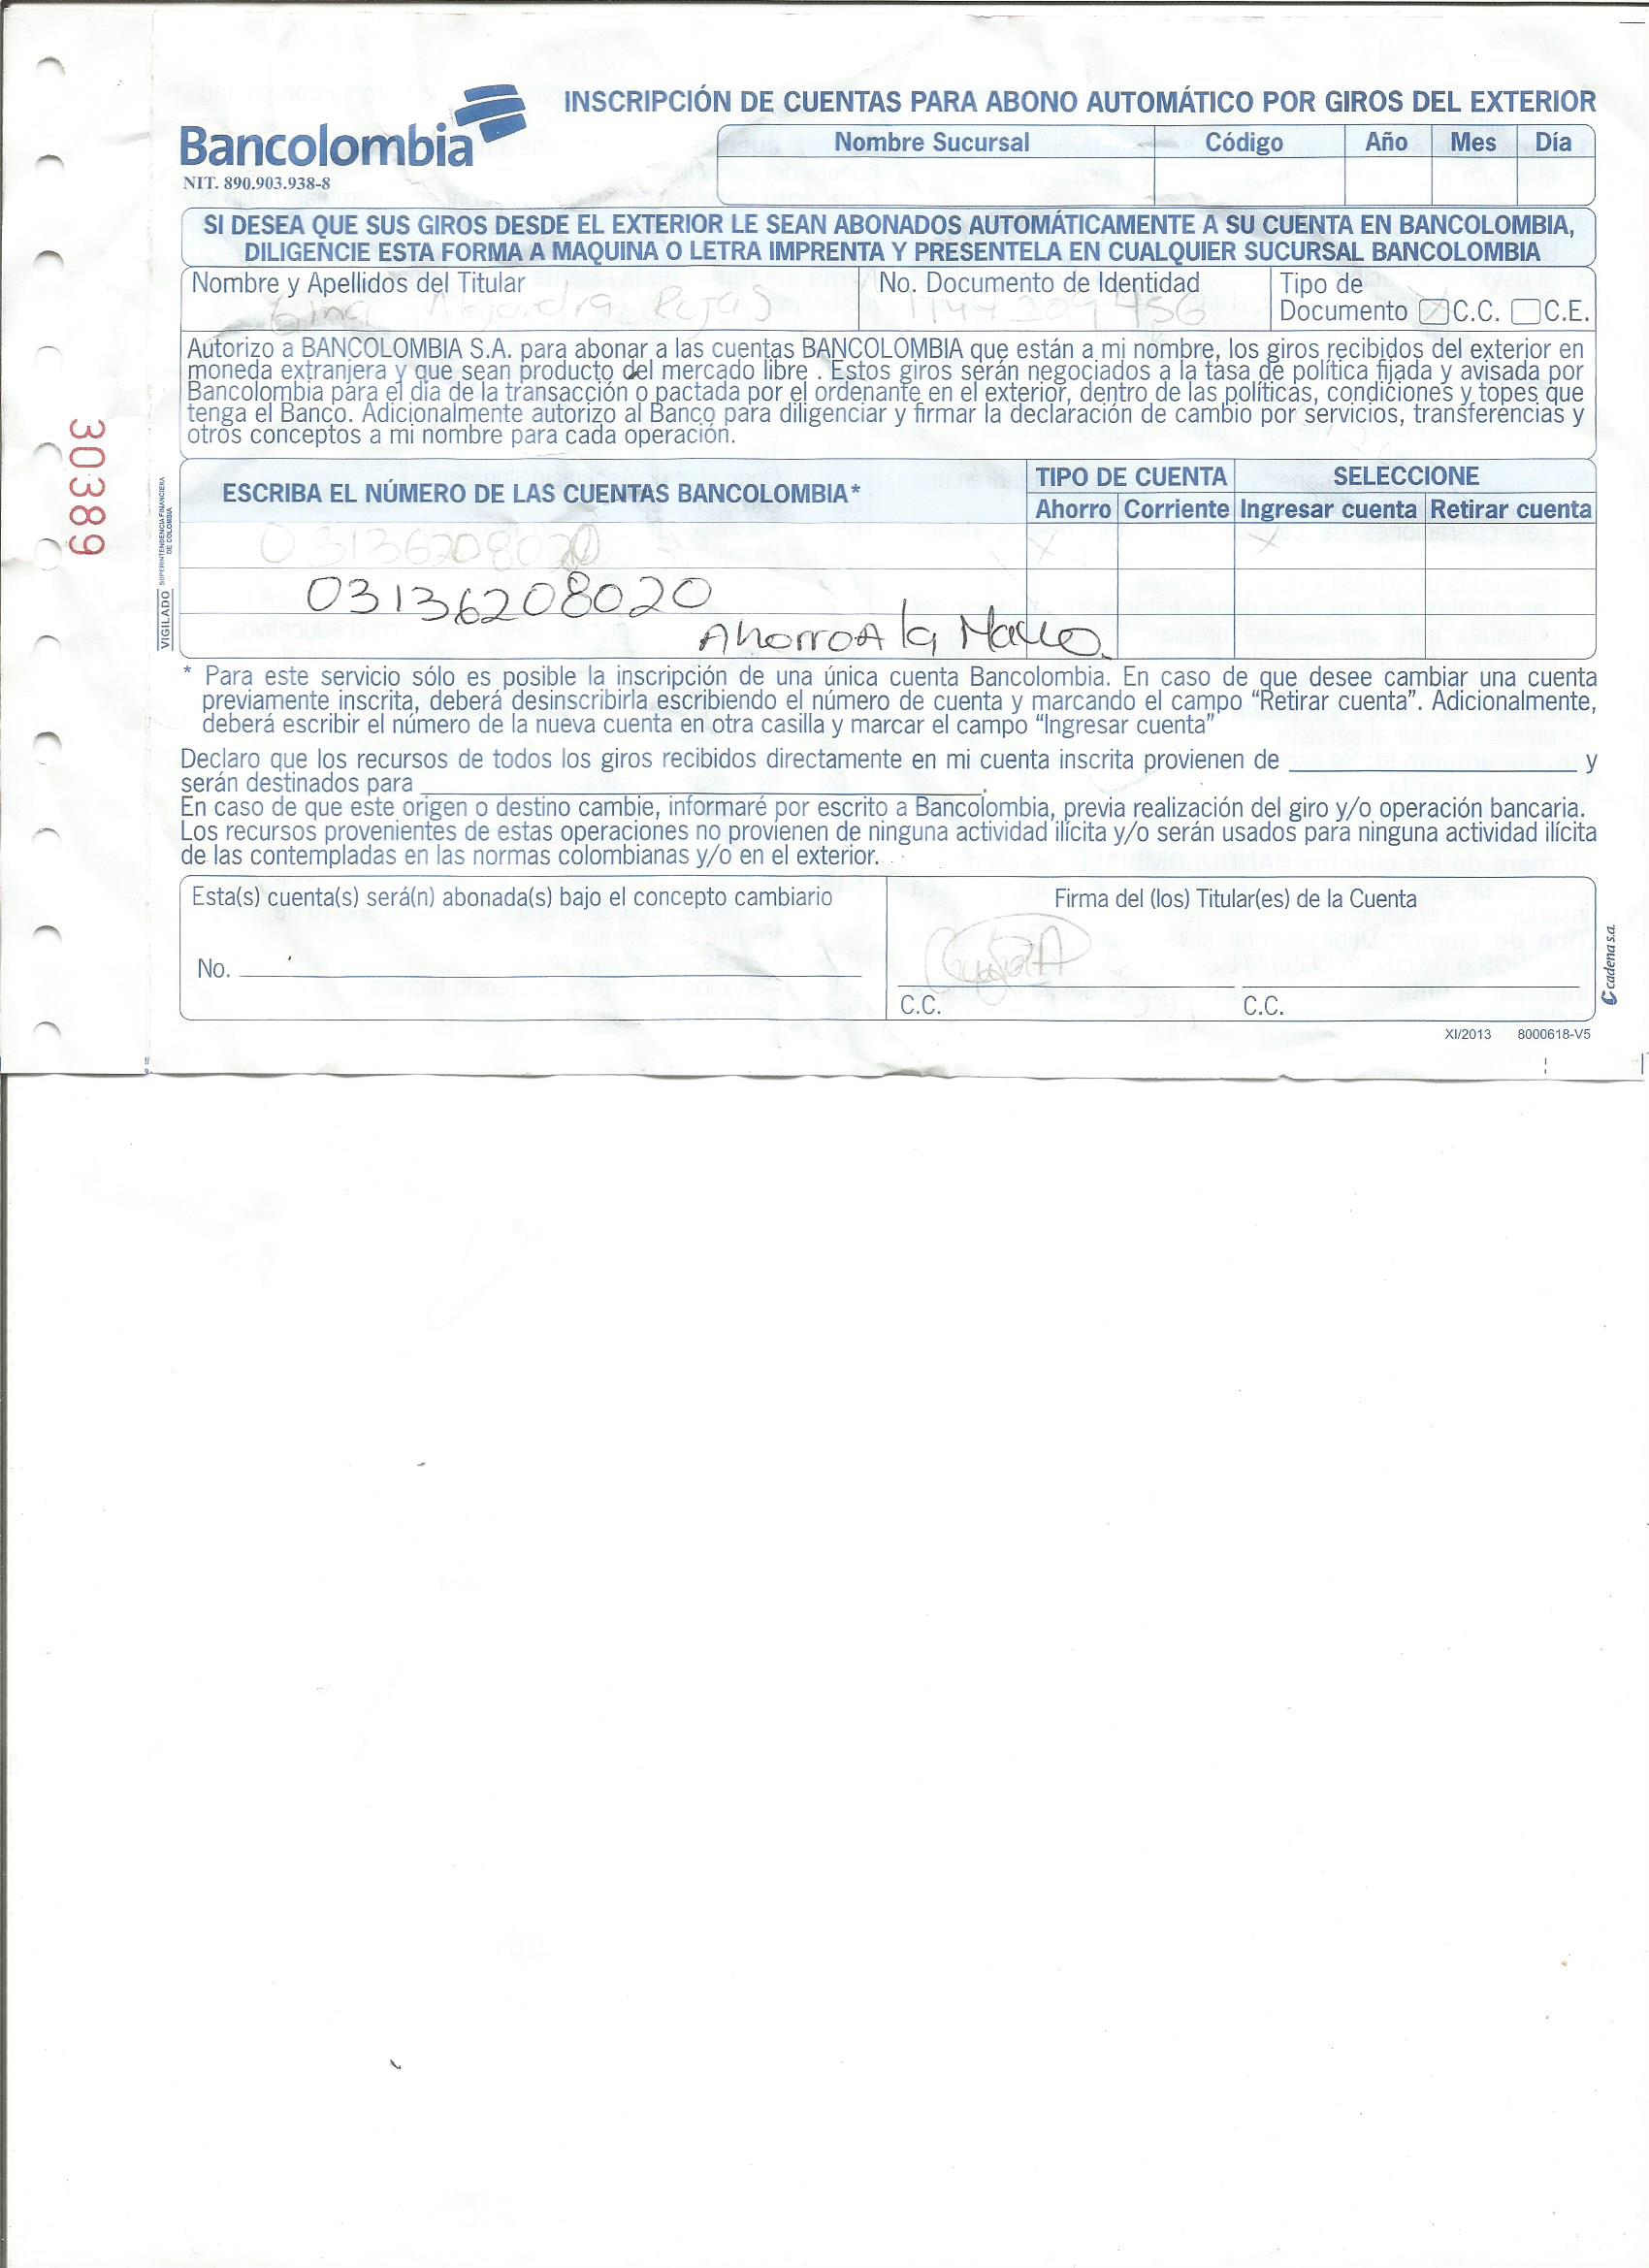 INSCRIPCIÓN DE CUENTAS PARA ABONO AUTOMÁTICO POR GIROS DEL EXTERIOR
Bancolombia
NIT. 890.903.938-8
Nombre Sucursal Código Año Mes Día
SI DESEA QUE SUS GIROS DESDE EL EXTERIOR LE SEAN ABONADOS AUTOMÁTICAMENTE A SU CUENTA EN BANCOLOMBIA,
DILIGENCIE ESTA FORMA A MAQUINA O LETRA IMPRENTA Y PRESENTELA EN CUALQUIER SUCURSAL BANCOLOMBIA
Nombre y Apellidos del Titular No. Documento de Identidad Tipo de
Documento C.C. C.E.
Alejandra Rojas
Autorizo a BANCOLOMBIA S.A. para abonar a las cuentas BANCOLOMBIA que están a mi nombre, los giros recibidos del exterior en
moneda extranjera y que sean producto del mercado libre . Estos giros serán negociados a la tasa de política fijada y avisada por
Bancolombia para el día de la transacción o pactada por el ordenante en el exterior, dentro de las políticas, condiciones y topes que
tenga el Banco. Adicionalmente autorizo al Banco para diligenciar y firmar la declaración de cambio por servicios, transferencias y
otros conceptos a mi nombre para cada operación.
30389
VIGILADO SUPERINTENDENCIA FINANCIERA
DE COLOMBIA
ESCRIBA EL NÚMERO DE LAS CUENTAS BANCOLOMBIA* TIPO DE CUENTA SELECCIONE
Ahorro Corriente Ingresar cuenta Retirar cuenta
03136208020 X X
03136208020
Ahorro A la Mano
* Para este servicio sólo es posible la inscripción de una única cuenta Bancolombia. En caso de que desee cambiar una cuenta
previamente inscrita, deberá desinscribirla escribiendo el número de cuenta y marcando el campo “Retirar cuenta”. Adicionalmente,
deberá escribir el número de la nueva cuenta en otra casilla y marcar el campo “Ingresar cuenta”
Declaro que los recursos de todos los giros recibidos directamente en mi cuenta inscrita provienen de y
serán destinados para .
En caso de que este origen o destino cambie, informaré por escrito a Bancolombia, previa realización del giro y/o operación bancaria.
Los recursos provenientes de estas operaciones no provienen de ninguna actividad ilícita y/o serán usados para ninguna actividad ilícita
de las contempladas en las normas colombianas y/o en el exterior.
Esta(s) cuenta(s) será(n) abonada(s) bajo el concepto cambiario Firma del (los) Titular(es) de la Cuenta
No.
C.C. C.C.
cadena s.a.
XI/2013 8000618-V5